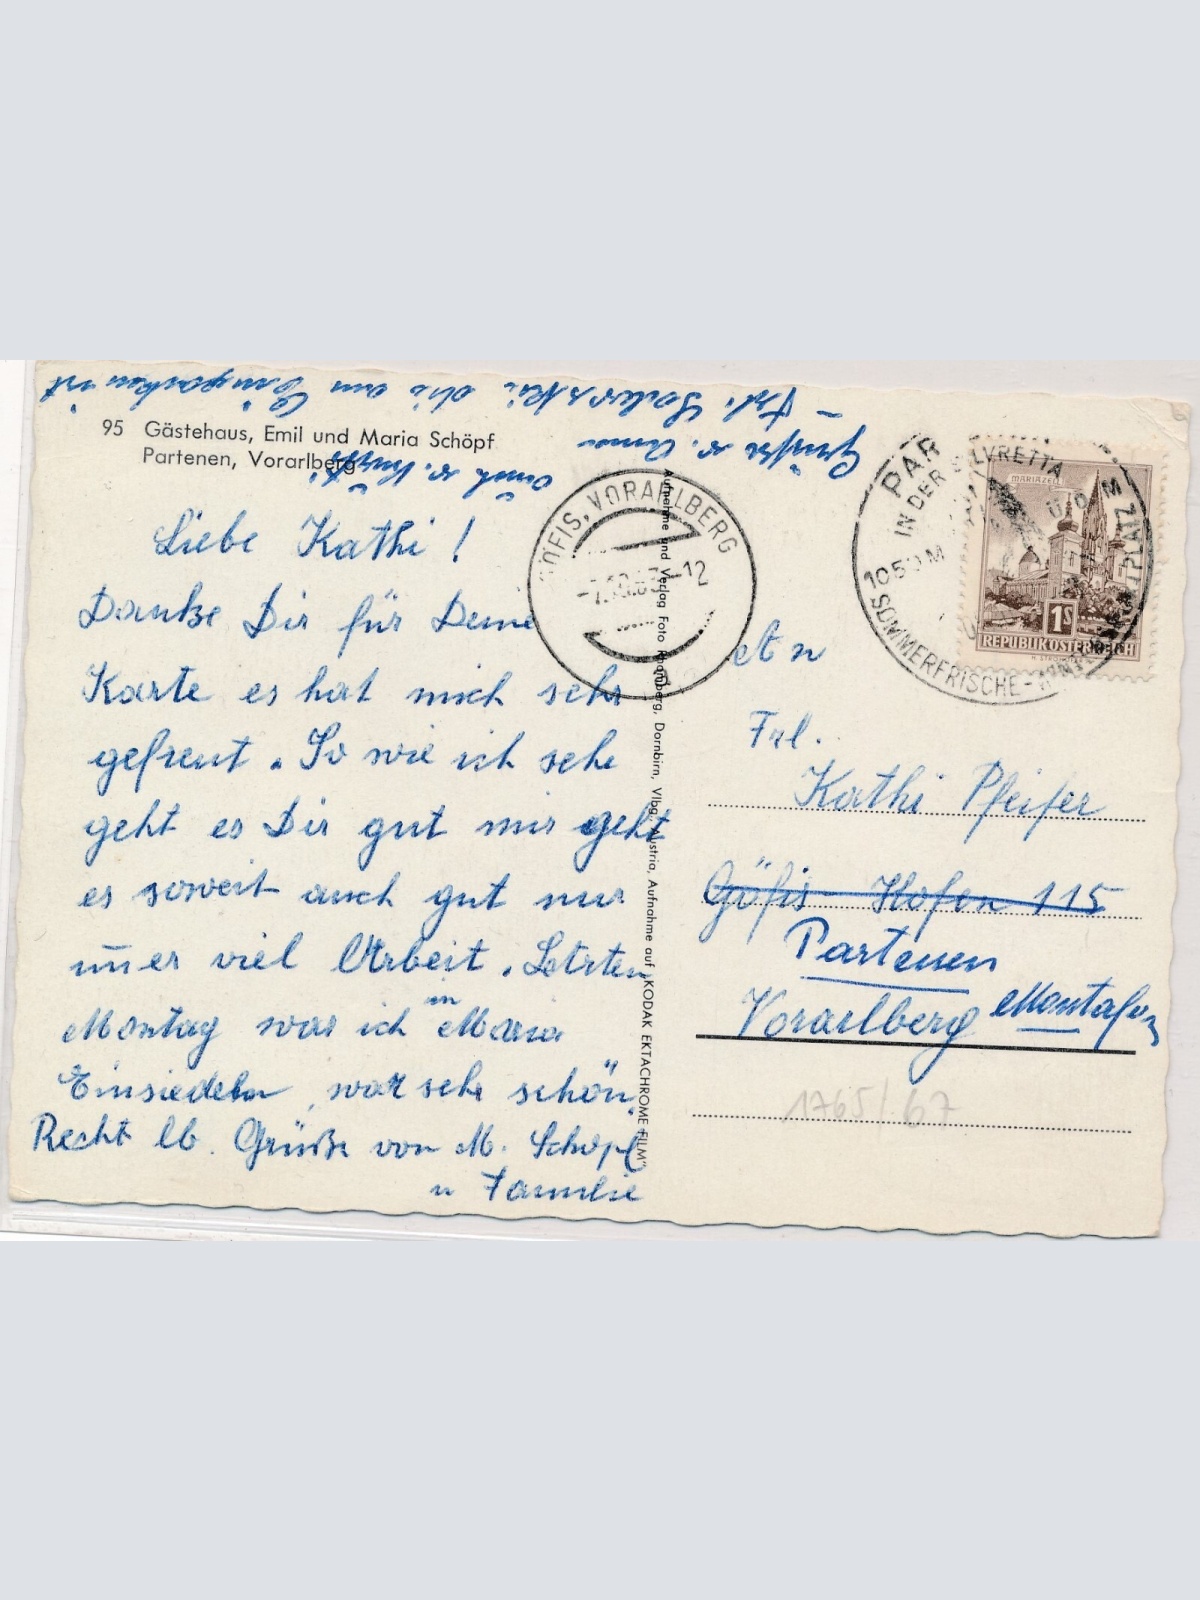 95 Gästehaus, Emil und Maria Schöpf
Partenen, Vorarlberg
Liebe Kathi!
Danke Dir für Deine
Karte es hat mich sehr
gefreut. So wie ich sehe
geht es Dir gut mir geht
es soweit auch gut nur
im̄er viel Arbeit. Letzten
Montag war ich in Maria
Einsiedeln, war sehr schön.
Recht lb. Grüße von M. Schöpf
u Familie
Grüße v. Anna
auch v.
Aufnahme und Verlag Foto Rhomberg, Dornbirn, Vlbg., Austria, Aufnahme auf "KODAK EKTACHROME FILM"
GÖFIS, VORARLBERG
-12
PAR
IN DER SILVRETTA
1050 M
SOMMERFRISCHE -
MARIAZELL
1S
REPUBLIK ÖSTERREICH
An
Frl.
Kathi Pfeifer
Göfis - Hofen 115
Partenen
Vorarlberg Montafon
1765/67